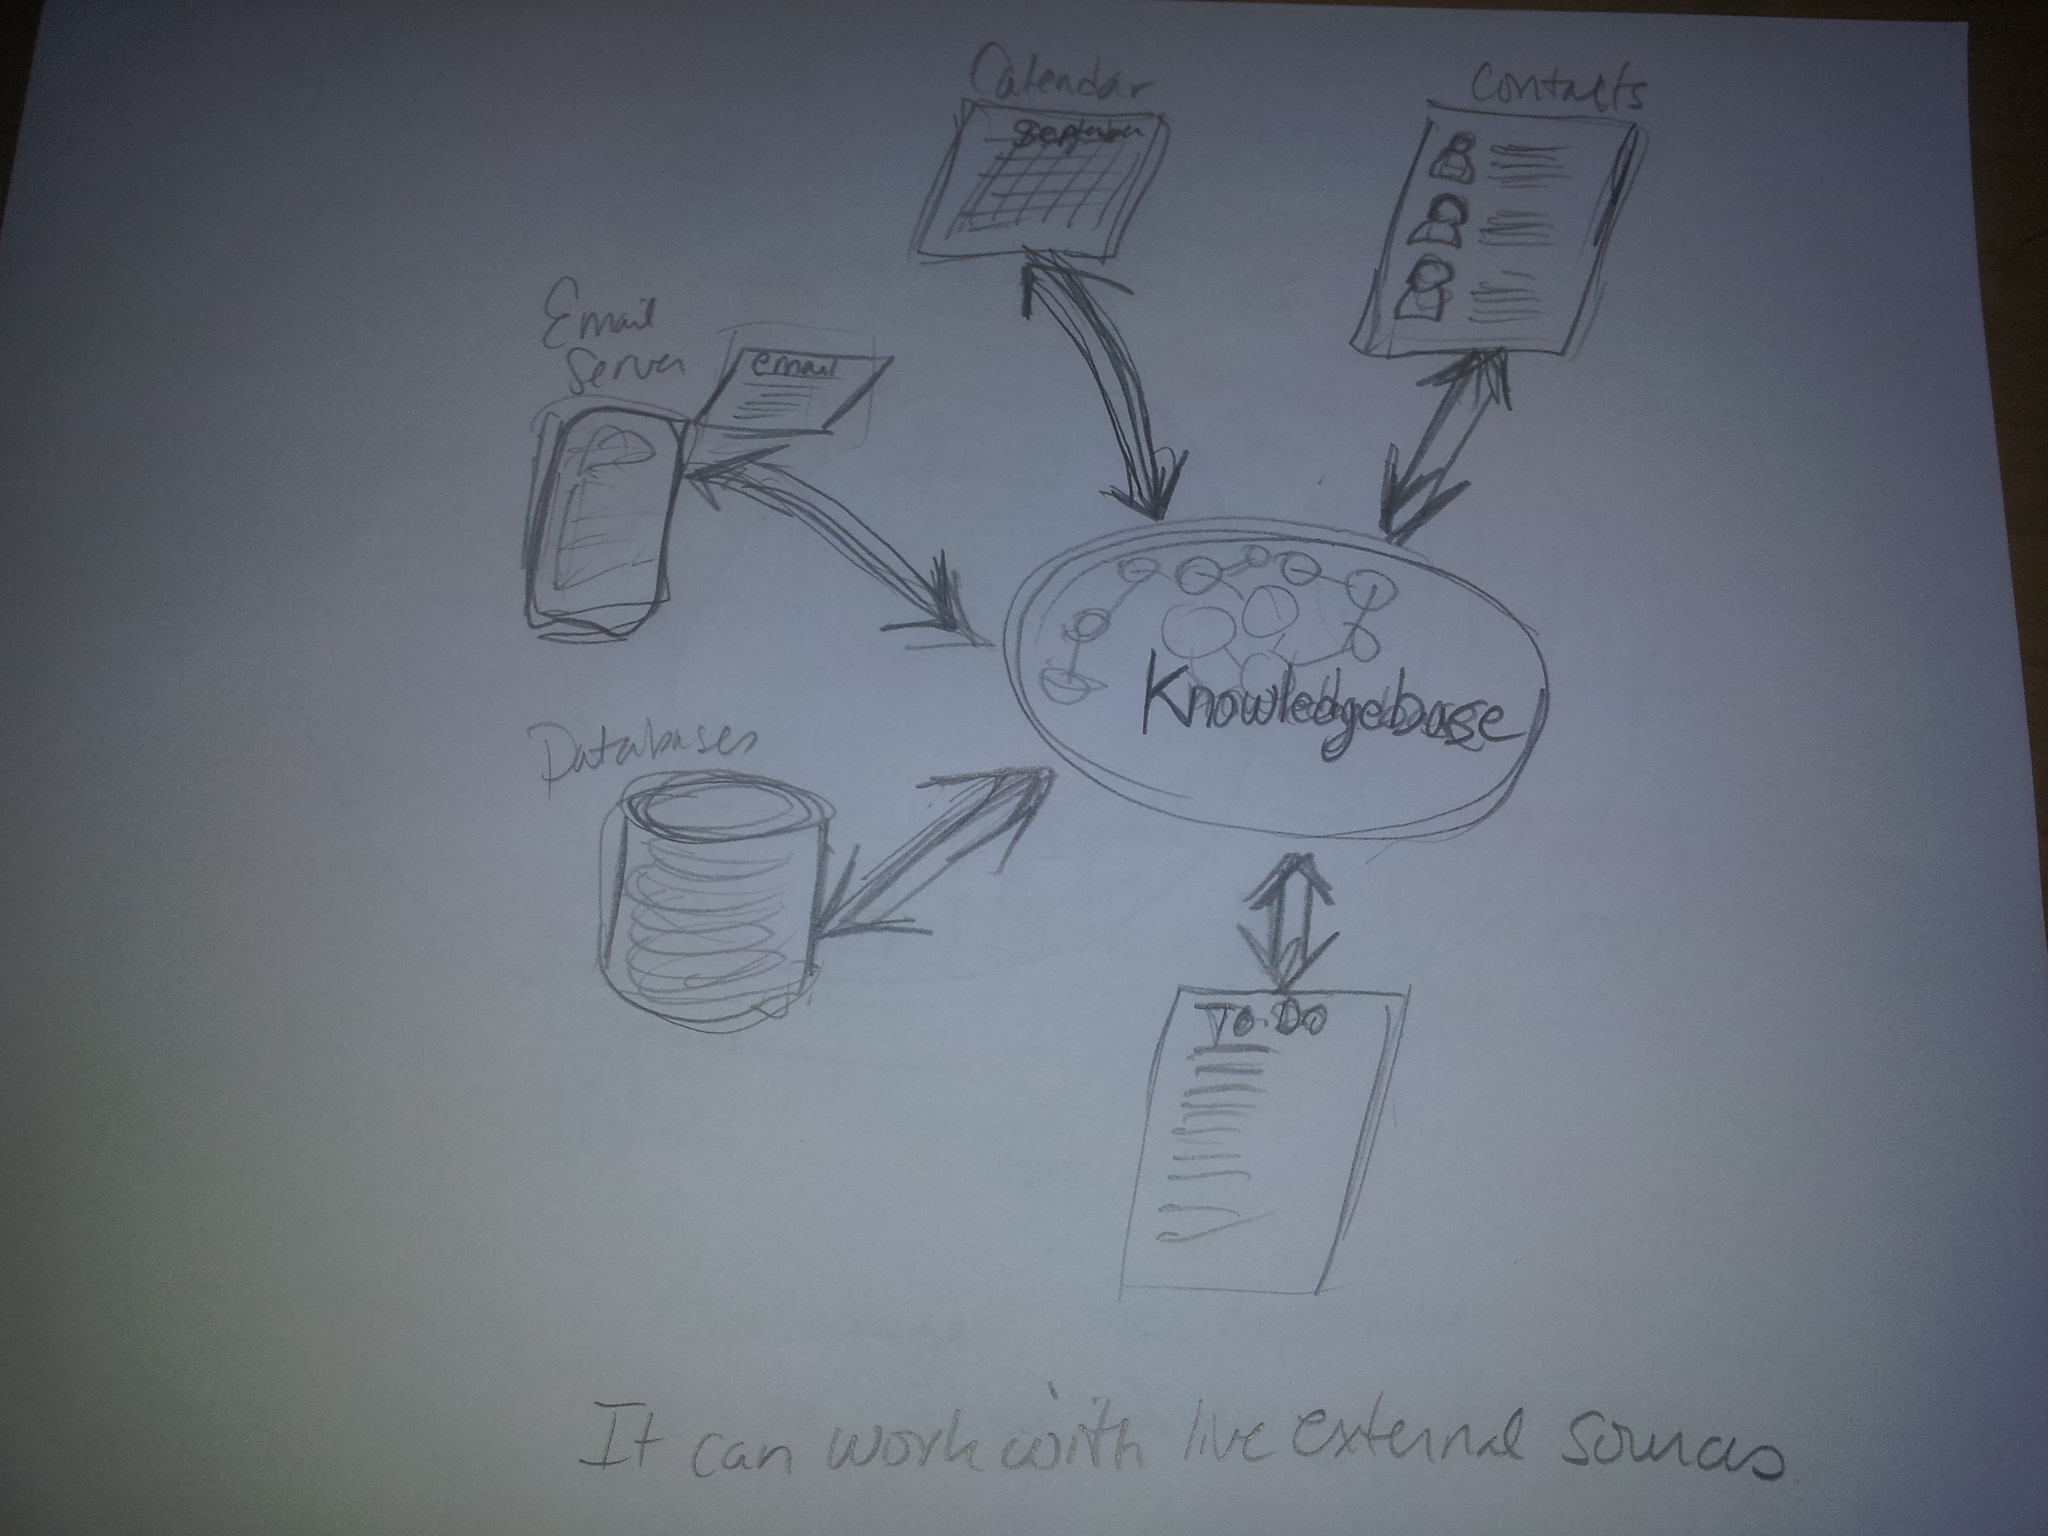 Calendar
September
Contacts
Email
Server
email
Databases
Knowledgebase
To-Do
It can work with live external sources